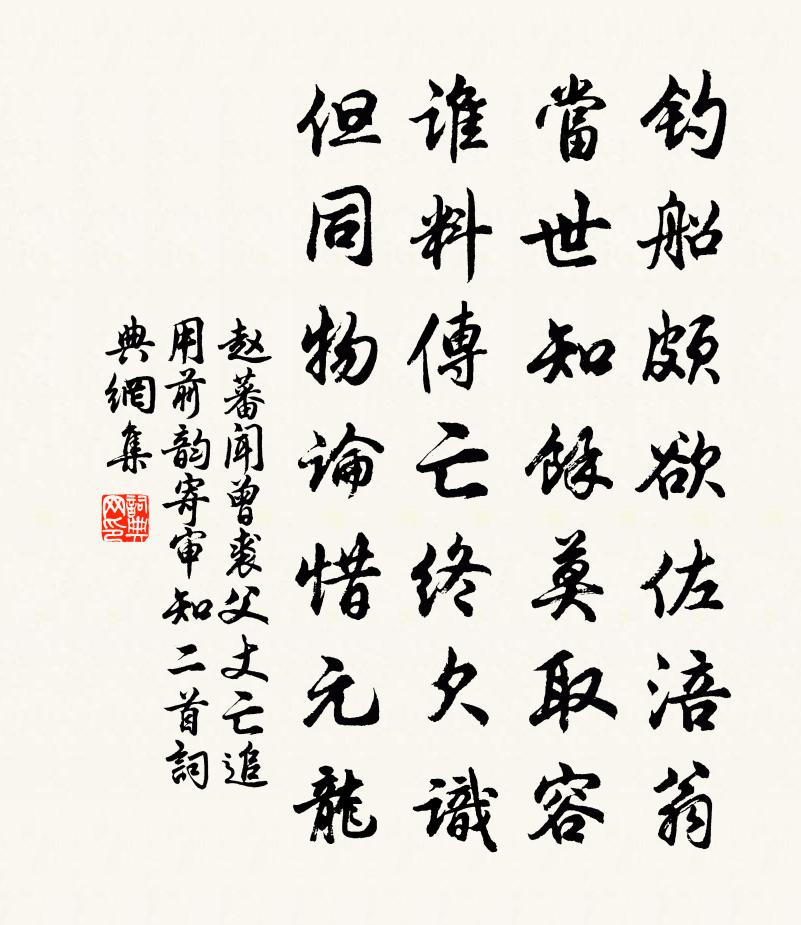 釣船頗欲佐涪翁
當世知餘莫取容
誰料傳亡終欠識
但同物論惜元龍
赵蕃闻曾裘父丈亡追
用前韵寄审知二首詞
典網集
詞典网印